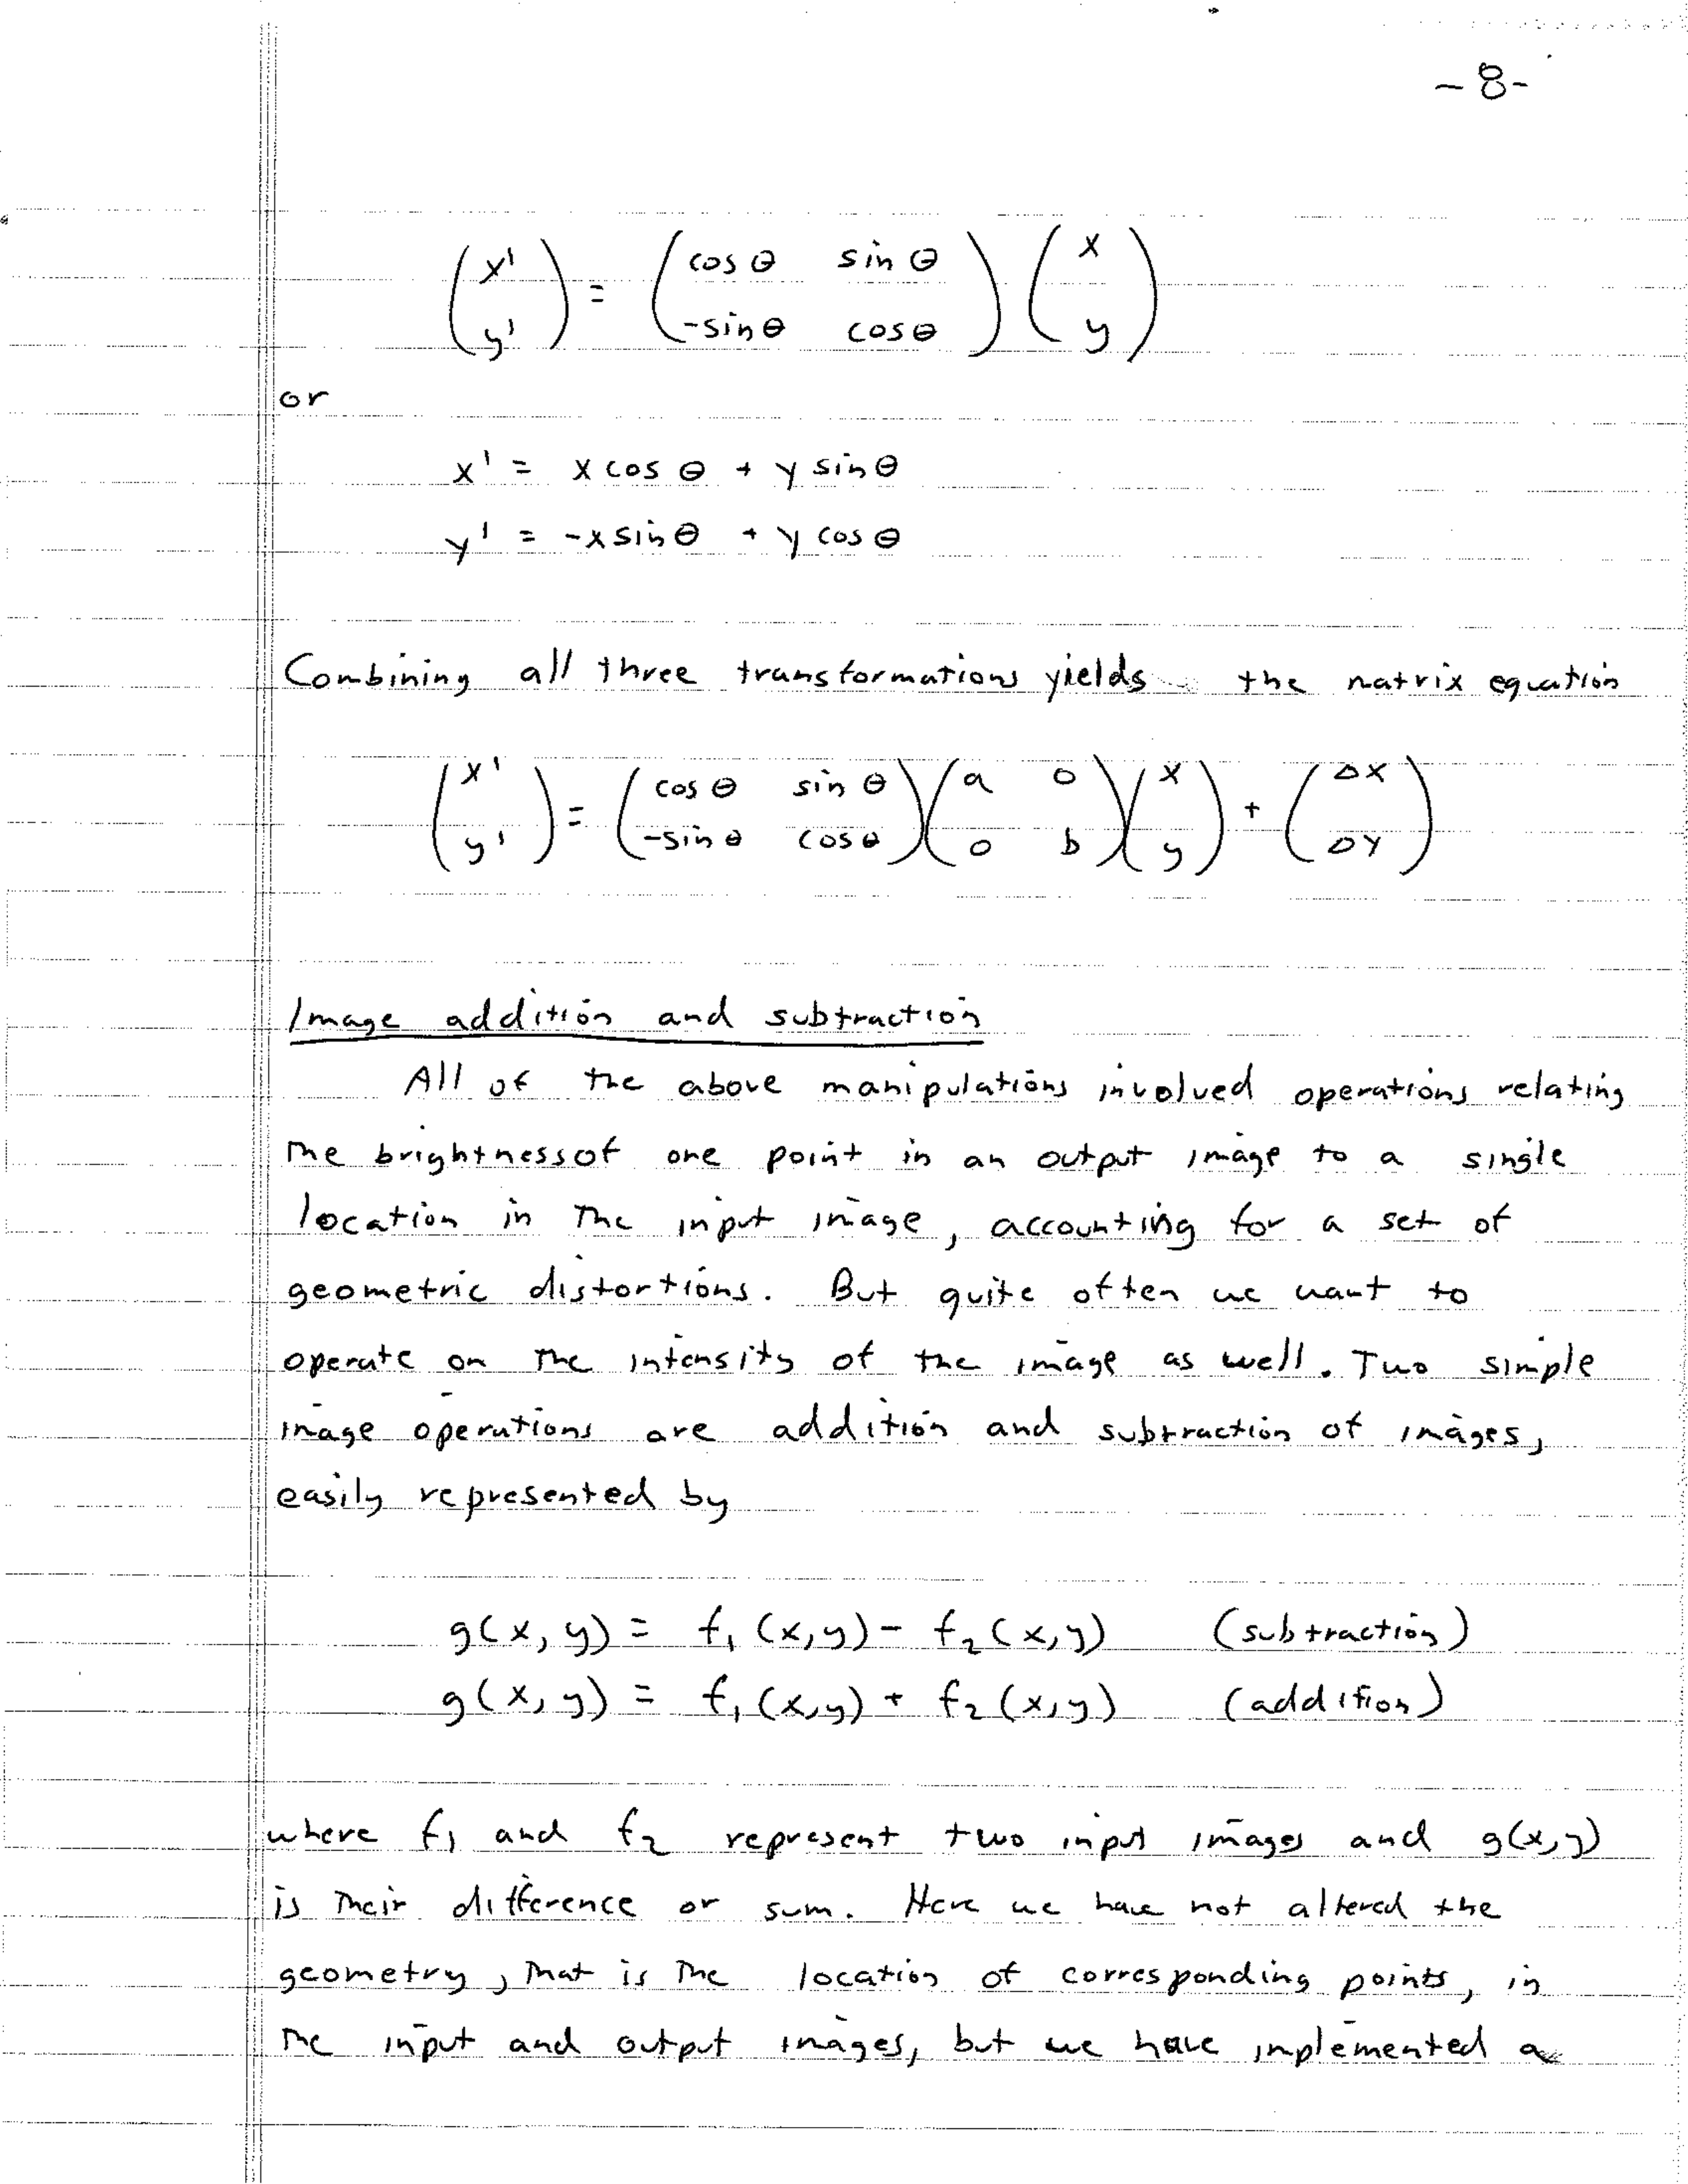 -8-
(x' y') = (cos θ sin θ -sin θ cos θ) (x y)
or
x' = x cos θ + y sin θ
y' = -x sin θ + y cos θ
Combining all three transformations yields the matrix equation
(x' y') = (cos θ sin θ -sin θ cos θ) (a 0 0 b) (x y) + (Δx Δy)
Image addition and subtraction
All of the above manipulations involved operations relating
the brightness of one point in an output image to a single
location in the input image, accounting for a set of
geometric distortions. But quite often we want to
operate on the intensity of the image as well. Two simple
image operations are addition and subtraction of images,
easily represented by
g(x, y) = f₁ (x,y) - f₂ (x,y) (subtraction)
g(x, y) = f₁ (x,y) + f₂ (x,y) (addition)
where f₁ and f₂ represent two input images and g(x,y)
is their difference or sum. Here we have not altered the
geometry, that is the location of corresponding points, in
the input and output images, but we have implemented a